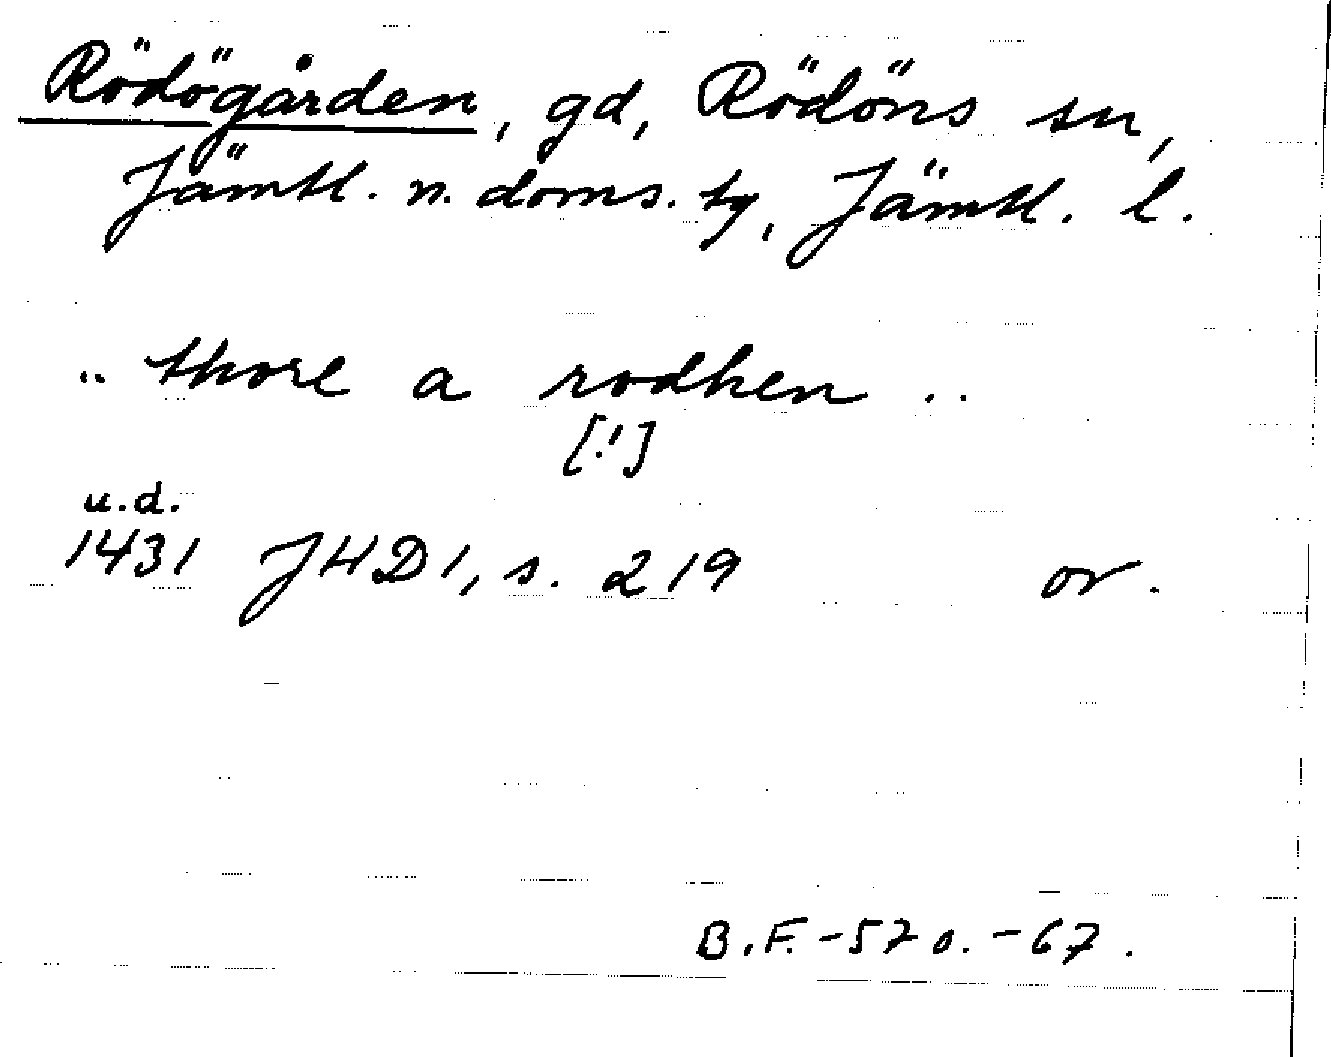 Rödögården, gd, Rödöns sn,
Jämtl. n. doms. tg, Jämtl. l.
.. thore a rodhen ..
[!]
u.d.
1431 JHD 1, s. 219 or.
B.F. -52 o. -67.